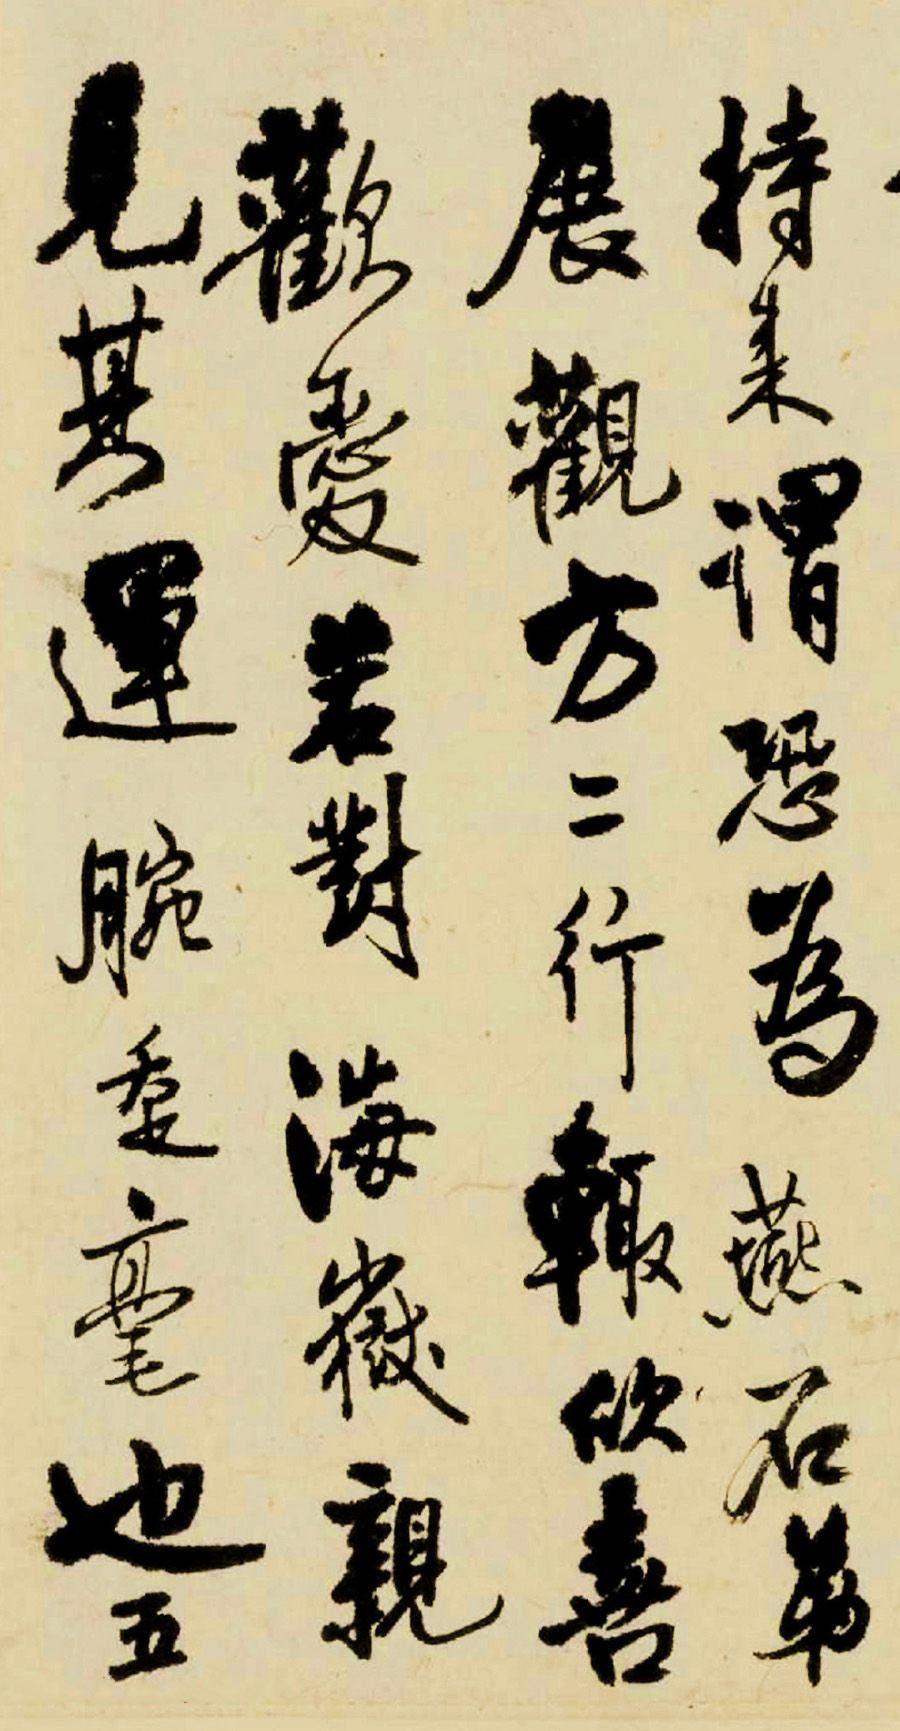 持来謂恐為燕石弟
展觀方二行輒欣喜
歡愛若對海嶽親
見其運腕垂毫也五